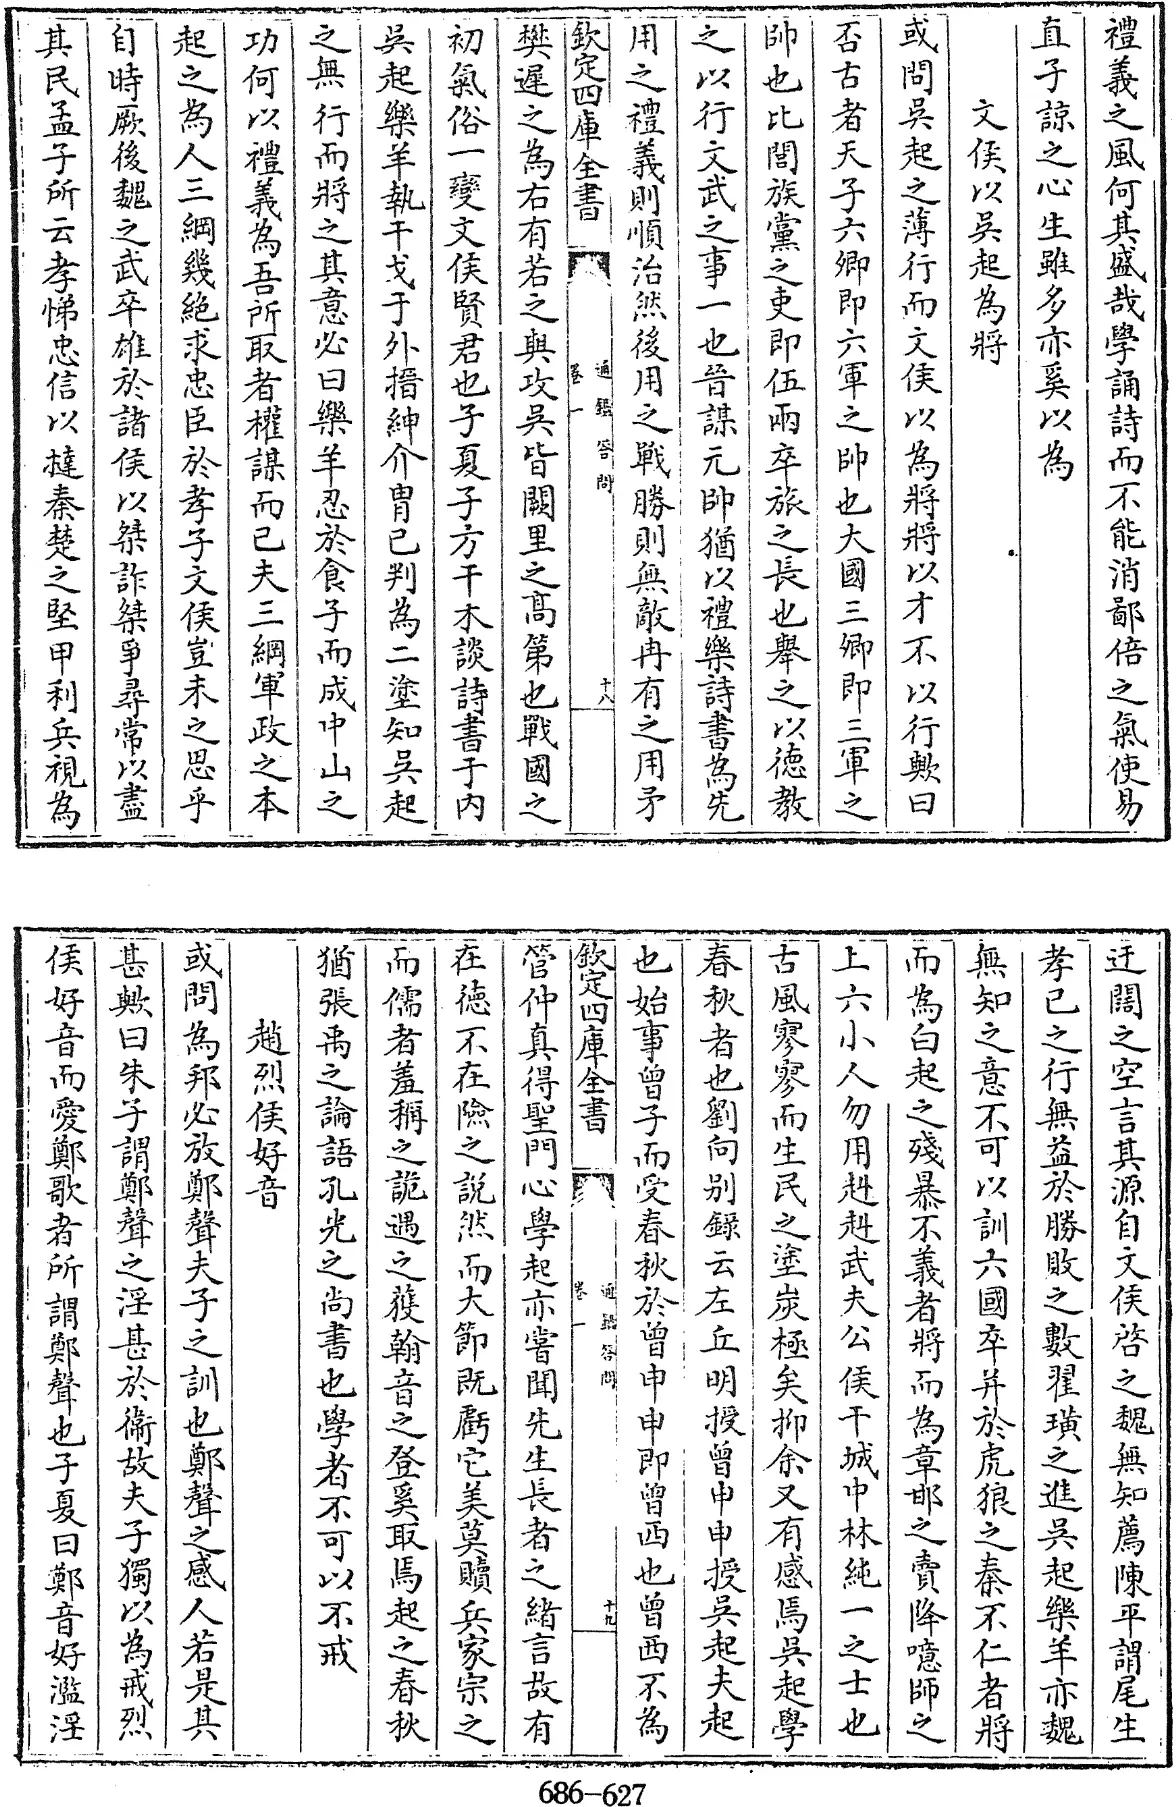 禮義之風何其盛哉學誦詩而不能消鄙倍之氣使易
直子諒之心生雖多亦奚以為
文侯以吳起為將
或問吳起之薄行而文侯以為將將以才不以行歟曰
否古者天子六卿即六軍之帥也大國三卿即三軍之
帥也比閭族黨之吏即伍兩卒旅之長也舉之以德教
之以行文武之事一也晉謀元帥猶以禮樂詩書為先
用之禮義則順治然後用之戰勝則無敵冉有之用矛
欽定四庫全書
通鑑答問
卷一
十八
樊遲之為右有若之與攻吳皆闕里之高第也戰國之
初氣俗一變文侯賢君也子夏子方干木談詩書于內
吳起樂羊執干戈于外搢紳介胄已判為二塗知吳起
之無行而將之其意必曰樂羊忍於食子而成中山之
功何以禮義為吾所取者權謀而已夫三綱軍政之本
起之為人三綱幾絕求忠臣於孝子文侯豈未之思乎
自時厥後魏之武卒雄於諸侯以桀詐桀爭尋常以盡
其民孟子所云孝悌忠信以撻秦楚之堅甲利兵視為
迂闊之空言其源自文侯啓之魏無知薦陳平謂尾生
孝已之行無益於勝敗之數翟璜之進吳起樂羊亦魏
無知之意不可以訓六國卒并於虎狼之秦不仁者將
而為白起之殘暴不義者將而為章邯之賣降噫師之
上六小人勿用赳赳武夫公侯干城中林純一之士也
古風寥寥而生民之塗炭極矣抑余又有感焉吳起學
春秋者也劉向别錄云左丘明授曾申申授吳起夫起
也始事曾子而受春秋於曾申申即曾西也曾西不為
欽定四庫全書
通鑑答問
卷一
十九
管仲真得聖門心學起亦嘗聞先生長者之緒言故有
在德不在險之說然而大節既虧它美莫贖兵家宗之
而儒者羞稱之詭遇之獲翰音之登奚取焉起之春秋
猶張禹之論語孔光之尚書也學者不可以不戒
趙烈侯好音
或問為邦必放鄭聲夫子之訓也鄭聲之感人若是其
甚歟曰朱子謂鄭聲之淫甚於衞故夫子獨以為戒烈
侯好音而愛鄭歌者所謂鄭聲也子夏曰鄭音好濫淫
686-627